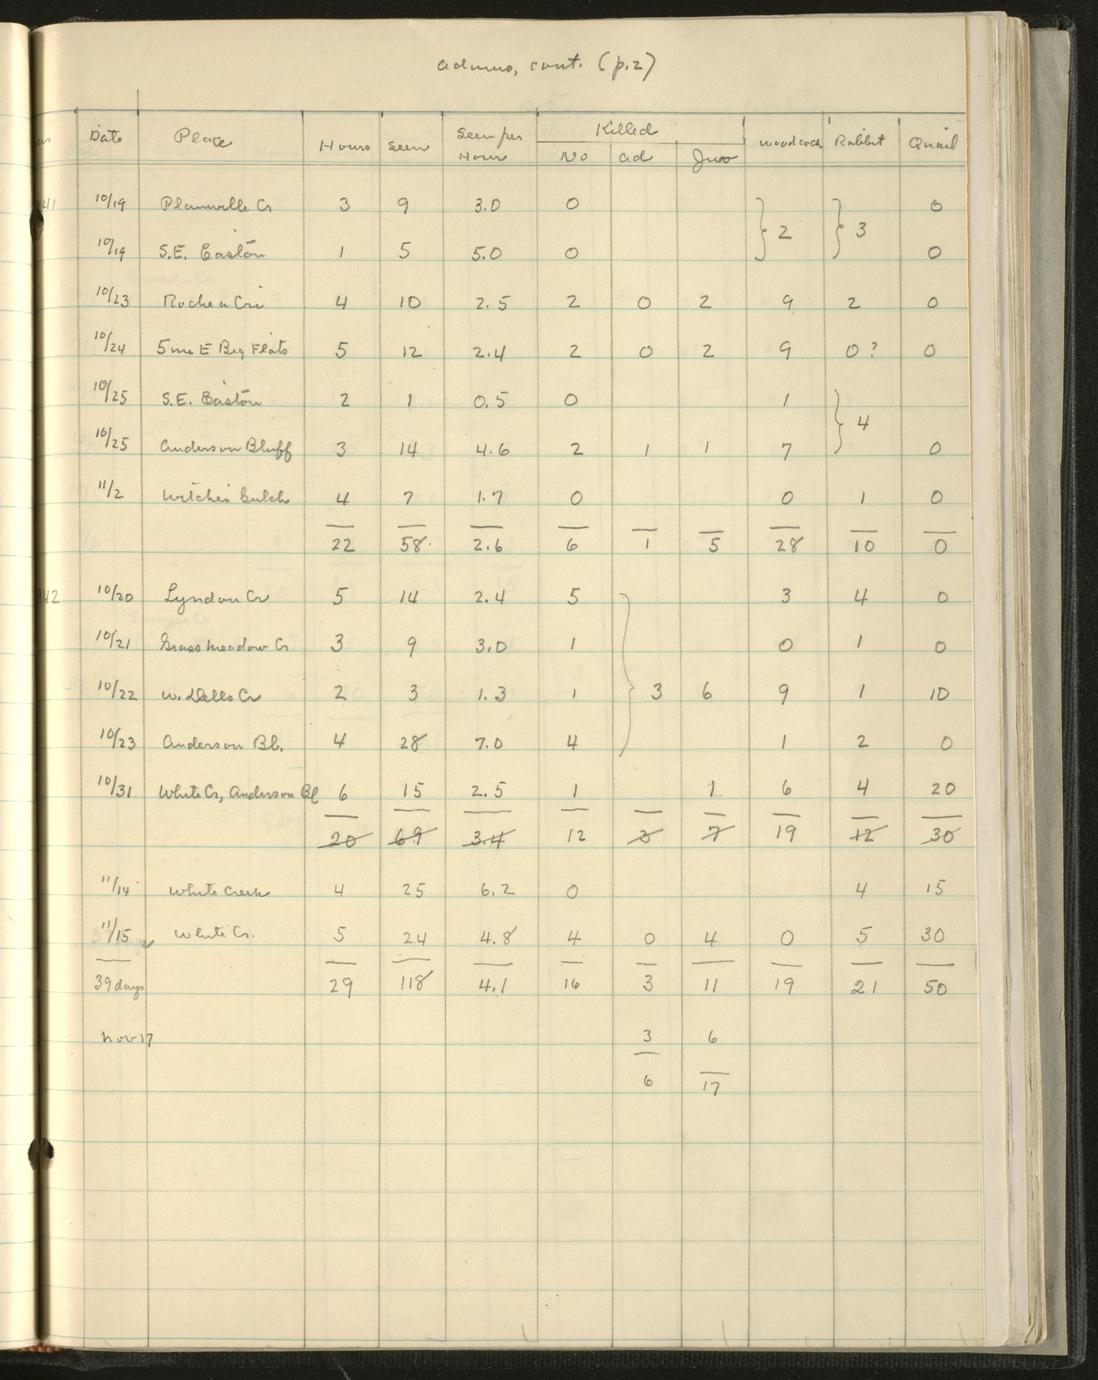 Adams, cont. (p.2)
Date Place Hours Seen Seen per Hour Killed No ad Juv Woodcock Rabbit Quail
41 10/19 Plainville Cr 3 9 3.0 0 } 2 } 3 0
10/19 S.E. Easton 1 5 5.0 0 0
10/23 Roche a Cri 4 10 2.5 2 0 2 9 2 0
10/24 5 mi E Big Flats 5 12 2.4 2 0 2 9 0? 0
10/25 S.E. Easton 2 1 0.5 0 1 } 4
10/25 Anderson Bluff 3 14 4.6 2 1 1 7 0
11/2 Witches Gulch 4 7 1.7 0 0 1 0
22 58 2.6 6 1 5 28 10 0
42 10/20 Lyndon Cr 5 14 2.4 5 3 4 0
10/21 Grass Meadow Cr 3 9 3.0 1 0 1 0
10/22 W. Dells Cr 2 3 1.3 1 } 3 6 9 1 10
10/23 Anderson Bl. 4 28 7.0 4 1 2 0
10/31 White Cr, Anderson Bl 6 15 2.5 1 1 6 4 20
20 69 3.4 12 3 7 19 12 30
11/14 White Creek 4 25 6.2 0 4 15
11/15 White Cr. 5 24 4.8 4 0 4 0 5 30
39 days 29 118 4.1 16 3 11 19 21 50
Nov 17 3 6
6 17